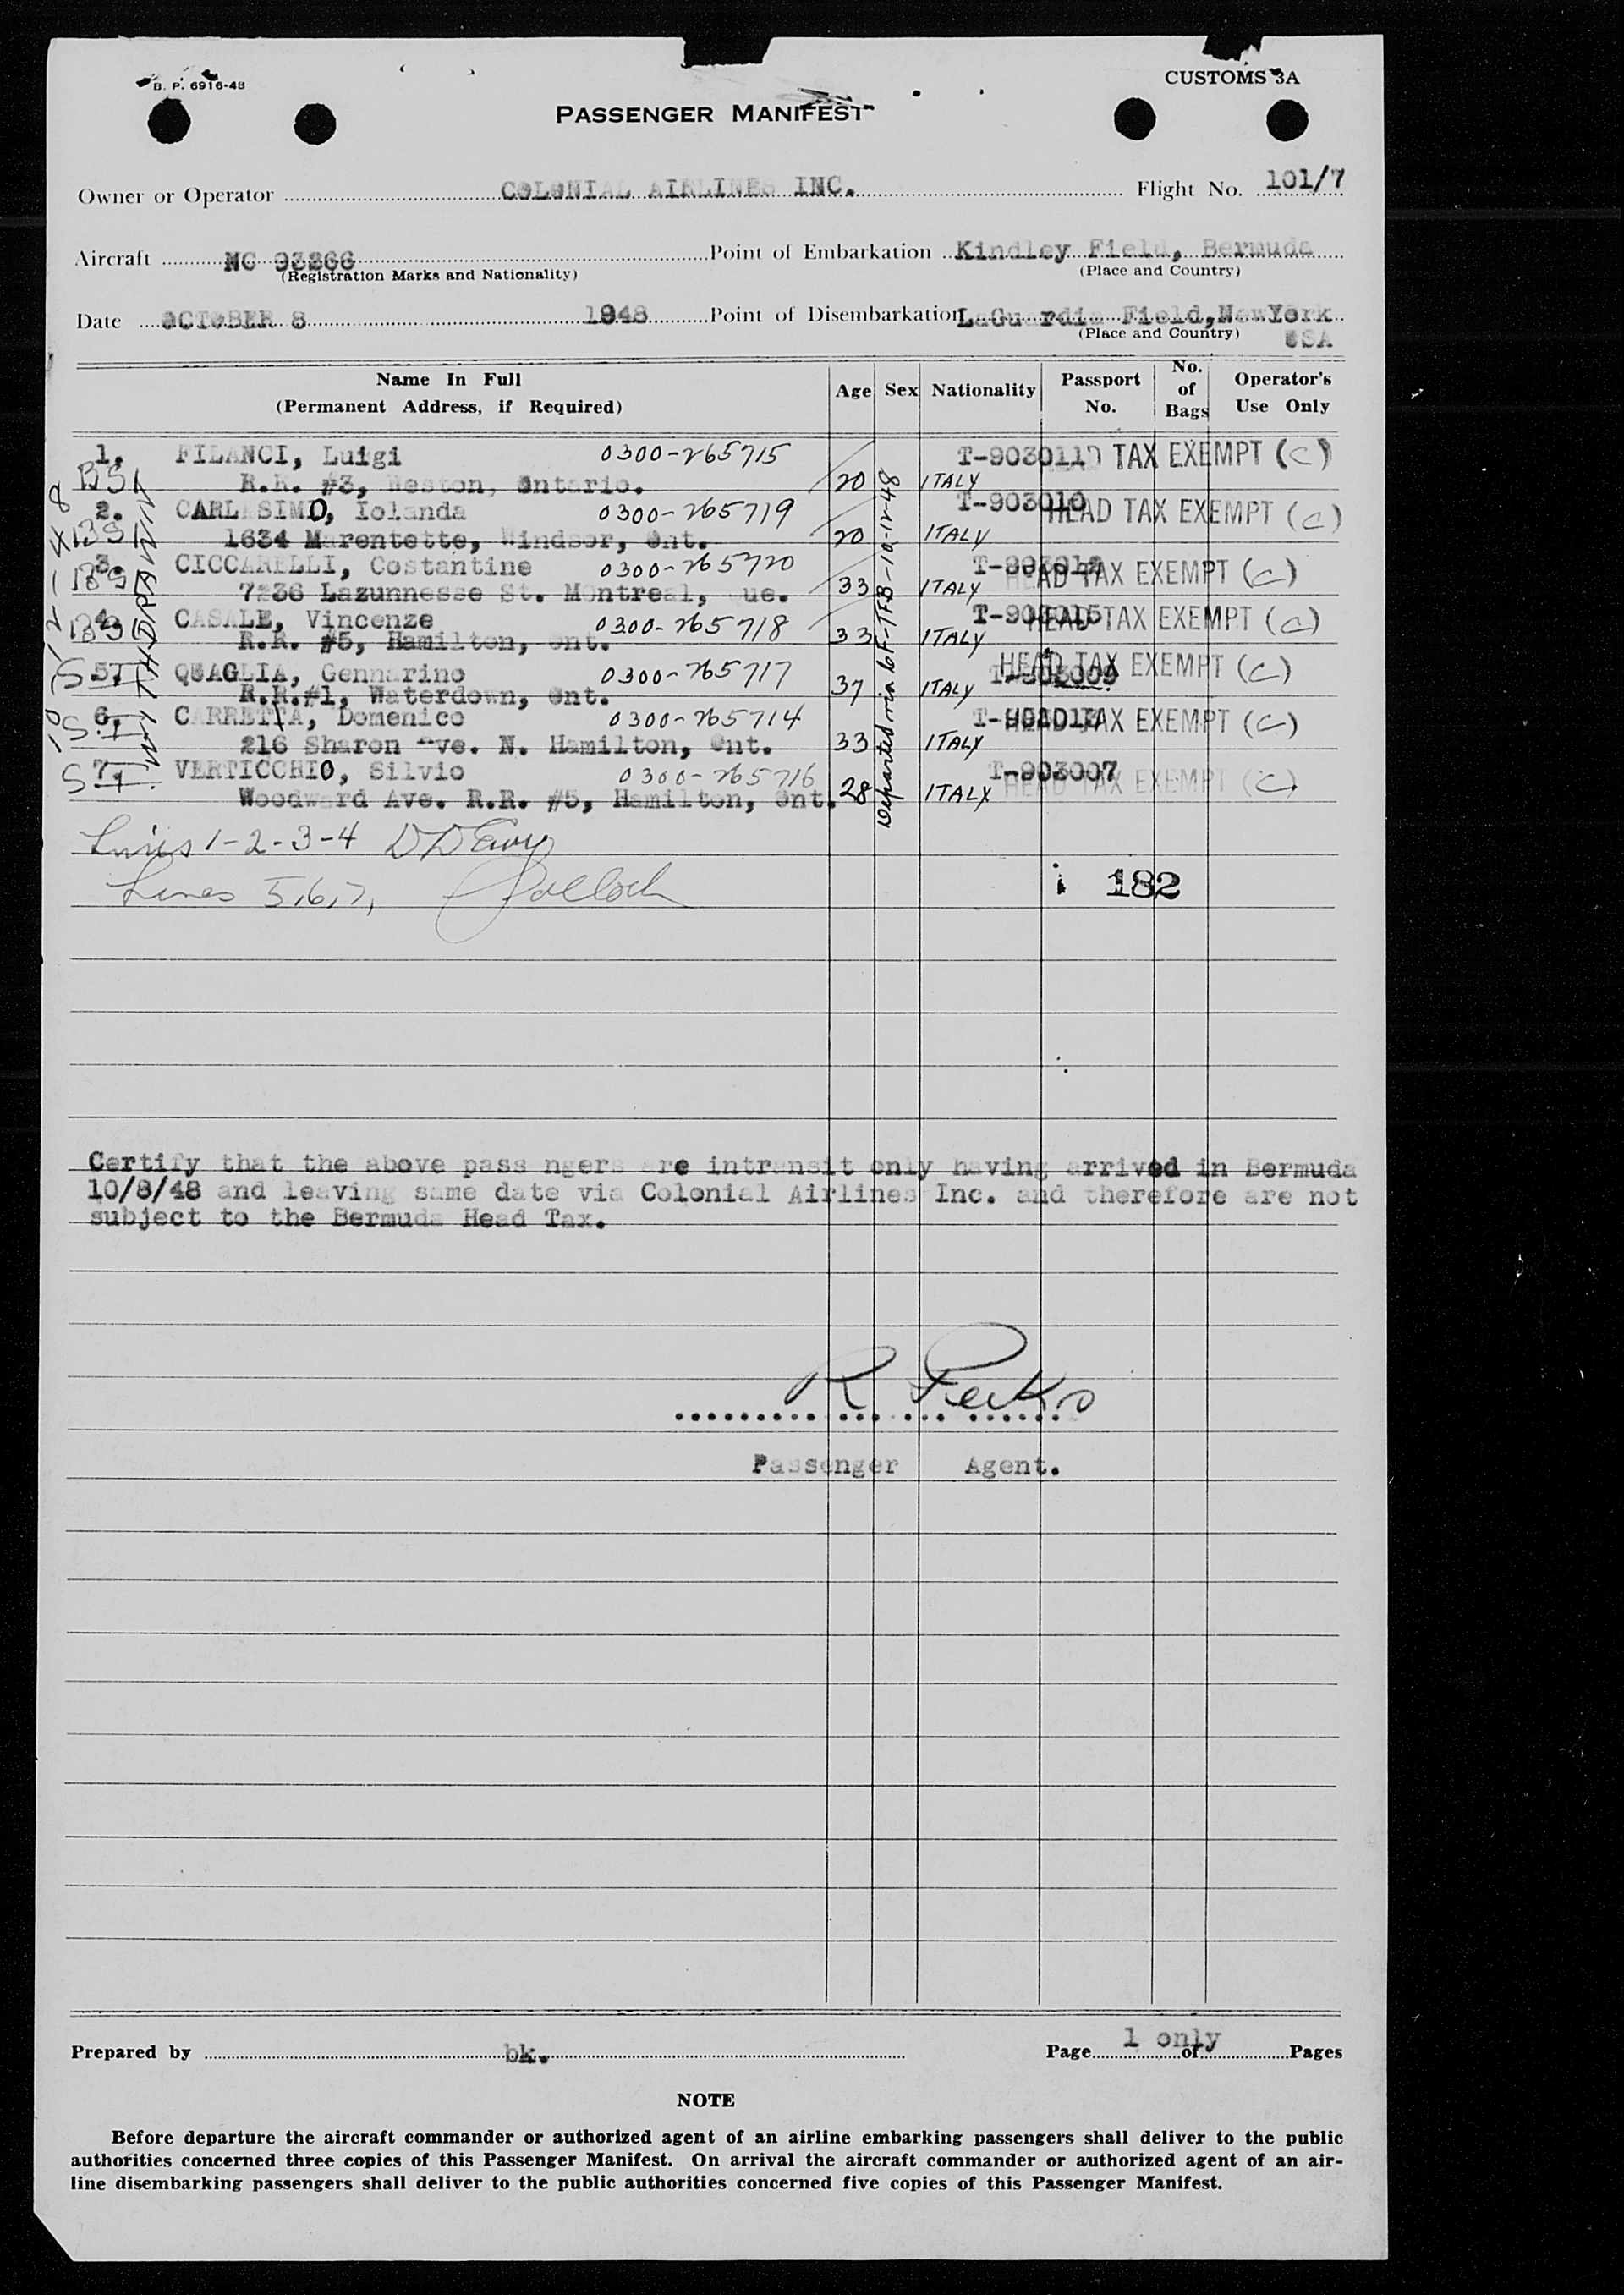 B. P. 6916-48
CUSTOMS 3A
PASSENGER MANIFEST
Owner or Operator COLONIAL AIRLINES INC. Flight No. 101/7
Aircraft NC 93266 Point of Embarkation Kindley Field, Bermuda
(Registration Marks and Nationality) (Place and Country)
Date OCTOBER 8 1948 Point of Disembarkation LaGuardia Field, NewYork
(Place and Country) USA
Name In Full (Permanent Address, if Required) Age Sex Nationality Passport No. No. of Bags Operator's Use Only
1. FILANCI, Luigi 0300-265715 T-903011 TAX EXEMPT (C)
BS R.R. #3, Weston, Ontario. 20 ITALY
2. CARLASIMO, Iolanda 0300-265719 T-903010 HEAD TAX EXEMPT (C)
BS 1634 Marentette, Windsor, Ont. 20 ITALY
3. CICCARELLI, Costantine 0300-265720 HEAD TAX EXEMPT (C)
BS 7236 Lazunnesse St. MOntreal, ue. 33 ITALY
4. CASALE, Vincenze 0300-265718 T-903015 HEAD TAX EXEMPT (C)
BS R.R. #5, Hamilton, Ont. 33 ITALY
5. QUAGLIA, Gennarino 0300-265717 T-903009 HEAD TAX EXEMPT (C)
S.I R.R.#1, Waterdown, Ont. 37 ITALY
6. CARRETTA, Domenico 0300-265714 HEAD TAX EXEMPT (C)
S.I 216 Sharon Ave. N. Hamilton, Ont. 33 ITALY
7. VERTICCHIO, Silvio 0300-265716 T-903007 HEAD TAX EXEMPT (C)
S.I. Woodward Ave. R.R. #5, Hamilton, Ont. 28 ITALY
10-12-48
WITHDRAWN
Departed via 6F-TFB-10-12-48
Lines 1-2-3-4
Lines 5,6,7,
182
Certify that the above pass ngers are intransit only having arrived in Bermuda
10/8/48 and leaving same date via Colonial Airlines Inc. and therefore are not
subject to the Bermuda Head Tax.
R Perks
Passenger Agent.
Prepared by bk. Page 1 only of Pages
NOTE
Before departure the aircraft commander or authorized agent of an airline embarking passengers shall deliver to the public
authorities concerned three copies of this Passenger Manifest. On arrival the aircraft commander or authorized agent of an air-
line disembarking passengers shall deliver to the public authorities concerned five copies of this Passenger Manifest.